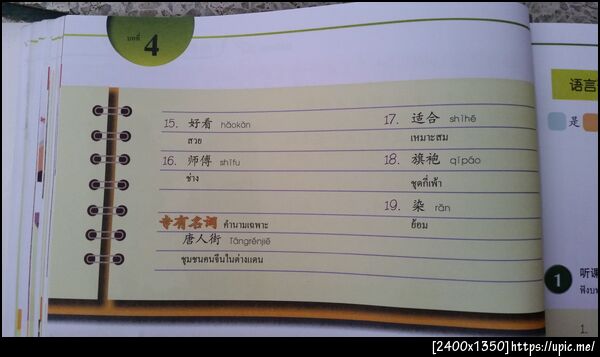 บทที่ 4
15. 好看 hǎokàn
สวย
16. 师傅 shīfu
ช่าง
专有名词 คำนามเฉพาะ
唐人街 tángrénjiē
ชุมชนคนจีนในต่างแดน
17. 适合 shìhé
เหมาะสม
18. 旗袍 qípáo
ชุดกี่เพ้า
19. 染 rǎn
ย้อม
语言
是
1 听课
ฟังบท
1.
[2400x1350]https://upic.me/